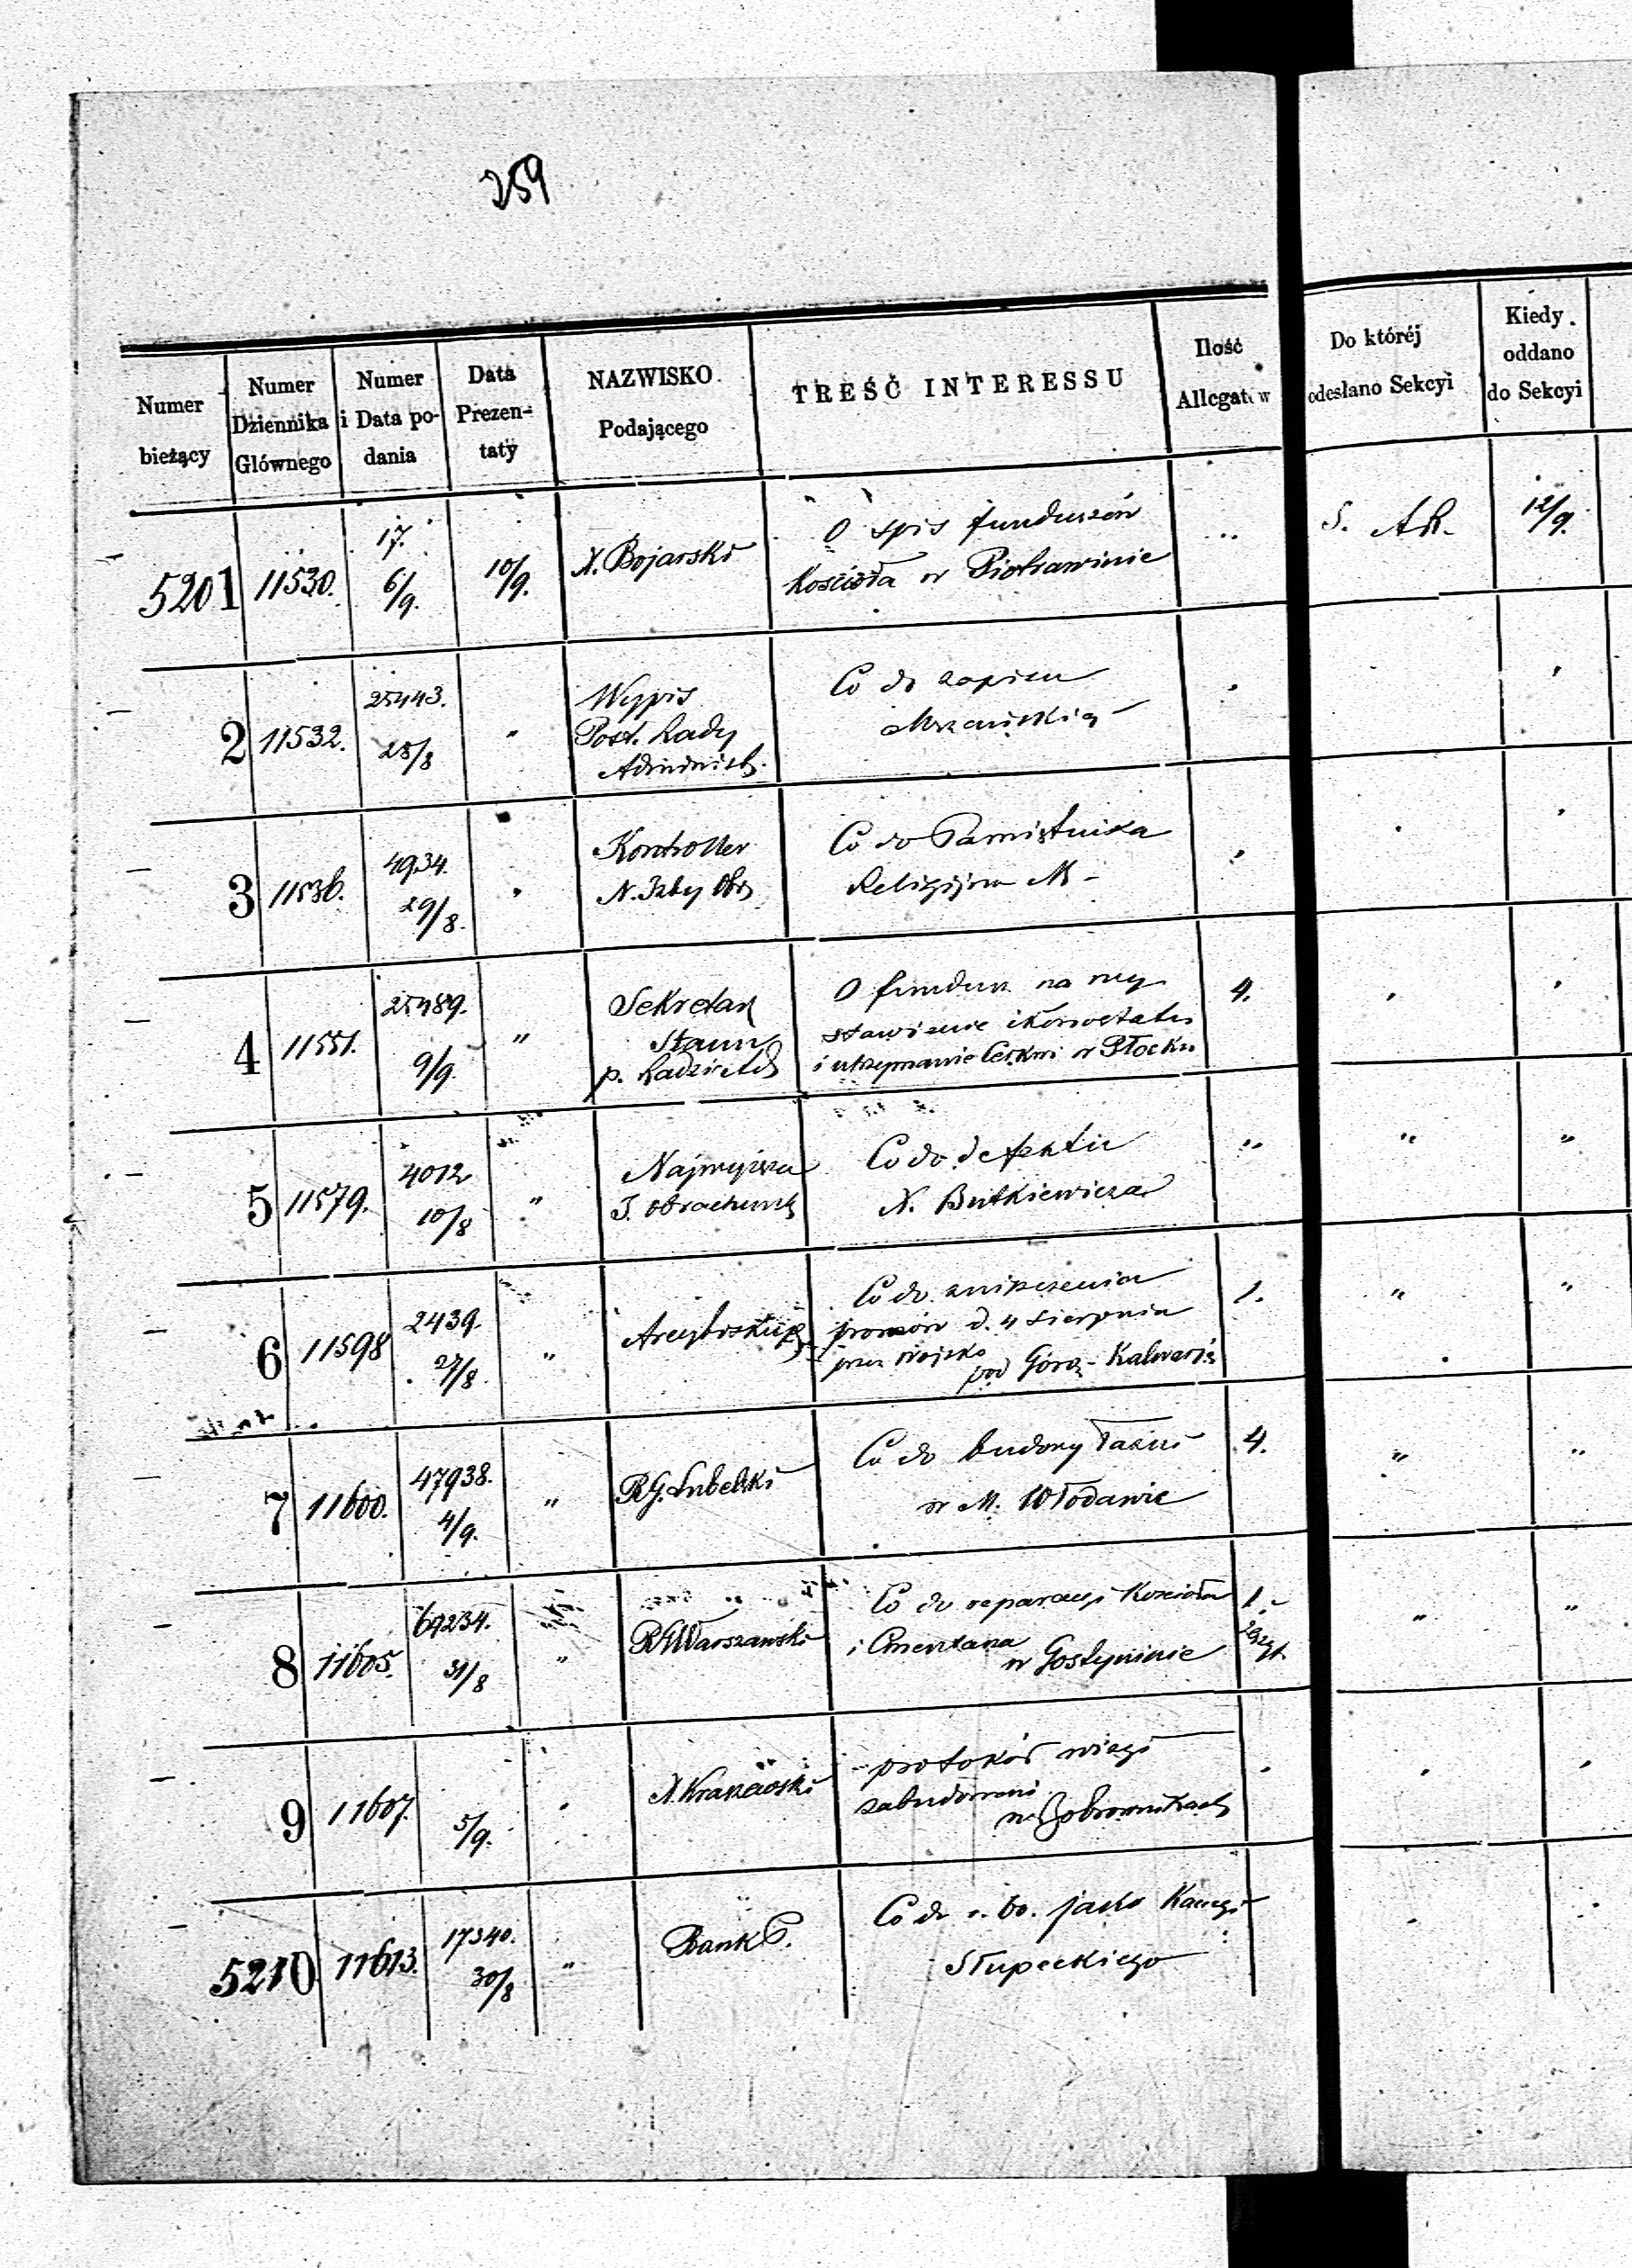 259
Numer bieżący
Numer Dziennika Głównego
Numer i Data podania
Data Prezentaty
NAZWISKO Podającego
TREŚĆ INTERESSU
Ilość Allegatów
Do któréj odesłano Sekcyi
Kiedy oddano do Sekcyi
5201 11530. 17. 6/9. 10/9. X. Bojarski
O spis funduszów
Kościoła w Piotrawinie
S. AR. 12/9.
2 11532. 25443. 28/8 "
Wypis
Post. Rady
Administ.
Co do zapisu
3 11536. 4934. 29/8.
Kontroller
N. Izby Obr
Co do Pamiętnika
Religijno M-
4 11551. 25489. 9/9 "
Sekretarz
Stanu
p.
O fundusz na wy
stawienie ikonostasu
i utrzymanie Cerkwi w Płocku
4.
5 11579. 4012 10/8 "
Najwyższa
I. Obrachunk
Co do defektu
X. Butkiewicza
" " "
6 11598 2439. 27/8. "
Arcybiskup
Co do zniszczenia
d. 4 Sierpnia
przez Wojsko
pod Górą-Kalwarią
1. " "
7 11600. 47938. 4/9. "
RG. Lubelski
Co do budowy
w M. Włodawie
4. " "
8 11605. 67234. 31/8 "
RGWarszawski
Co do reparacyi Kościoła
i Cmentarza
w Gostyninie
1. " "
9 11607. 5/9.
X. Krakowski
protokół
zabudowań
w Bobrownikach
5210 11613. 17340. 30/8 "
Bank P.
Co do
Słupeckiego